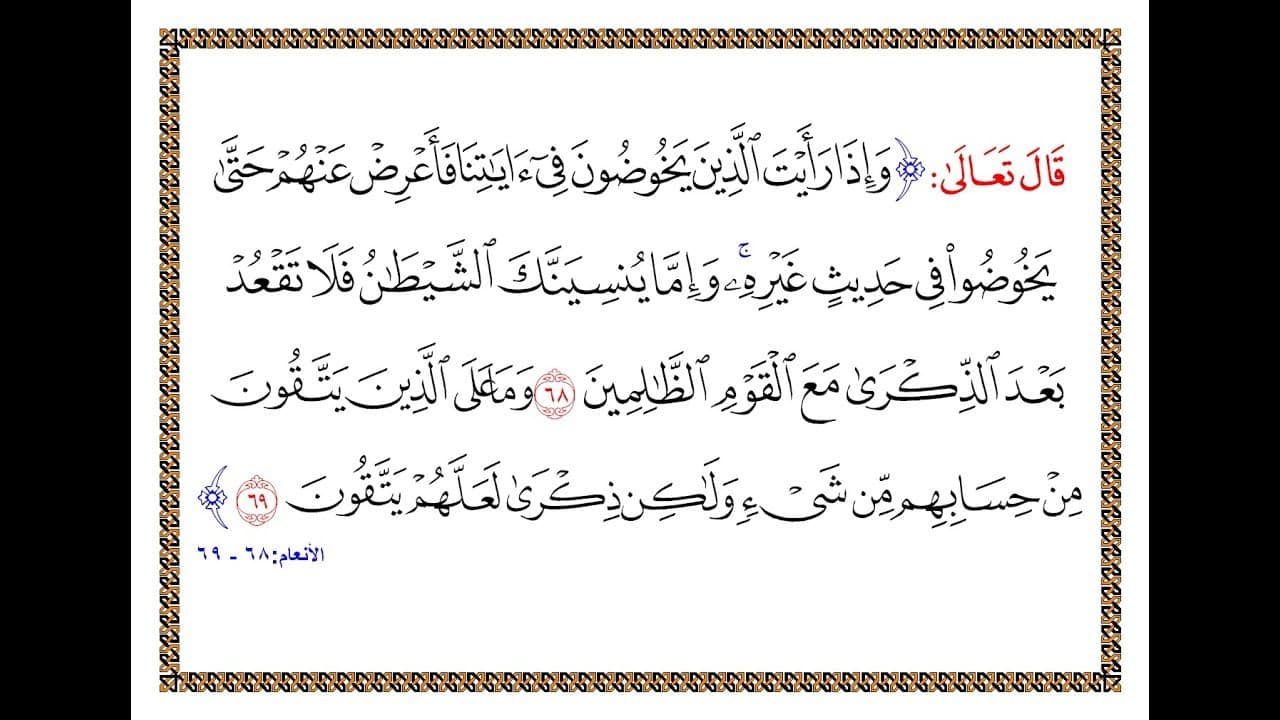 قَالَ تَعَالَىٰ: ﴿ وَإِذَا رَأَيْتَ ٱلَّذِينَ يَخُوضُونَ فِىٓ ءَايَـٰتِنَا فَأَعْرِضْ عَنْهُمْ حَتَّىٰ
يَخُوضُوا۟ فِى حَدِيثٍ غَيْرِهِۦ ۚ وَإِمَّا يُنسِيَنَّكَ ٱلشَّيْطَـٰنُ فَلَا تَقْعُدْ
بَعْدَ ٱلذِّكْرَىٰ مَعَ ٱلْقَوْمِ ٱلظَّـٰلِمِينَ ٦٨ وَمَا عَلَى ٱلَّذِينَ يَتَّقُونَ
مِنْ حِسَابِهِم مِّن شَىْءٍ وَلَـٰكِن ذِكْرَىٰ لَعَلَّهُمْ يَتَّقُونَ ٦٩ ﴾
الأنعام: ٦٨ - ٦٩